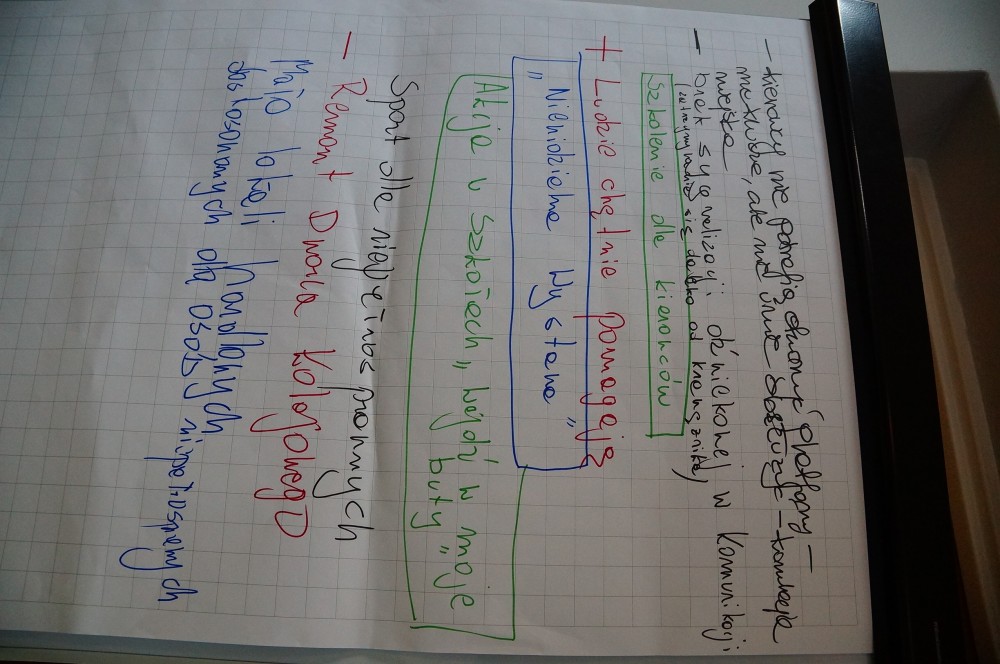 - kierowcy nie potrafią otworzyć platformy -
nie każdy umie obsłużyć - komunikacja
miejska
- brak sygnalizacji dźwiękowej w komunikacji
(zatrzymywanie się daleko od krawężnika)
Szkolenie dla kierowców
+ Ludzie chętnie pomagają
"Niewidzialna Wystawa"
Akcje w szkołach "wejdź w moje
buty"
Sport dla niepełnosprawnych
- Remont Dworca Kolejowego
Mało lokali handlowych
dostosowanych dla osób niepełnosprawnych